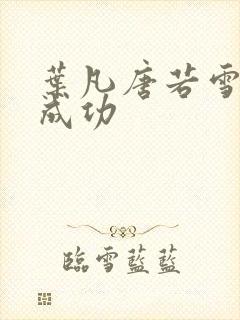 葉凡唐若雪
成功
臨雪藍藍